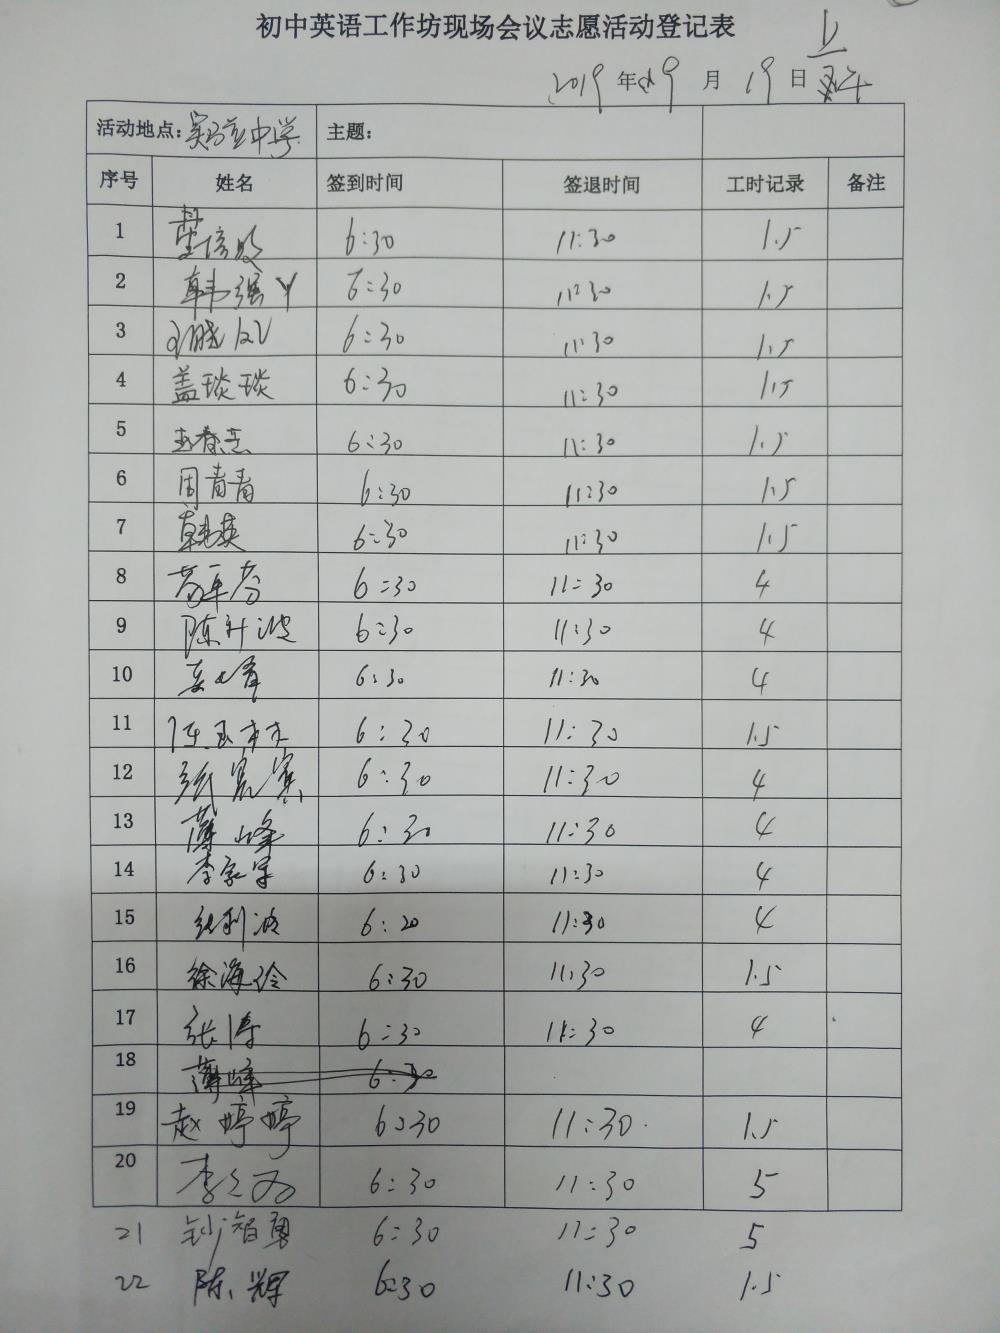 初中英语工作坊现场会议志愿活动登记表
2019 年 9 月 19 日
活动地点: 实验中学 主题:
序号 姓名 签到时间 签退时间 工时记录 备注
1 6:30 11:30 1.5
2 韩强 6:30 11:30 1.5
3 6:30 11:30 1.5
4 盖琰琰 6:30 11:30 1.5
5 王春燕 6:30 11:30 1.5
6 周青青 6:30 11:30 1.5
7 韩英 6:30 11:30 1.5
8 6:30 11:30 4
9 陈升波 6:30 11:30 4
10 6:30 11:30 4
11 陈玉 6:30 11:30 1.5
12 张宾宾 6:30 11:30 4
13 薄峰 6:30 11:30 4
14 李家军 6:30 11:30 4
15 张利波 6:20 11:30 4
16 徐海玲 6:30 11:30 1.5
17 张涛 6:30 11:30 4
18 薄峰 6:30
19 赵婷婷 6:30 11:30 1.5
20 李 6:30 11:30 5
21 智勇 6:30 11:30 5
22 陈辉 6:30 11:30 1.5